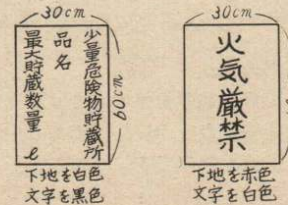 30cm
少量危険物貯蔵所
品名
最大貯蔵数量 ℓ
60cm
下地を白色
文字を黒色
30cm
火気厳禁
下地を赤色
文字を白色